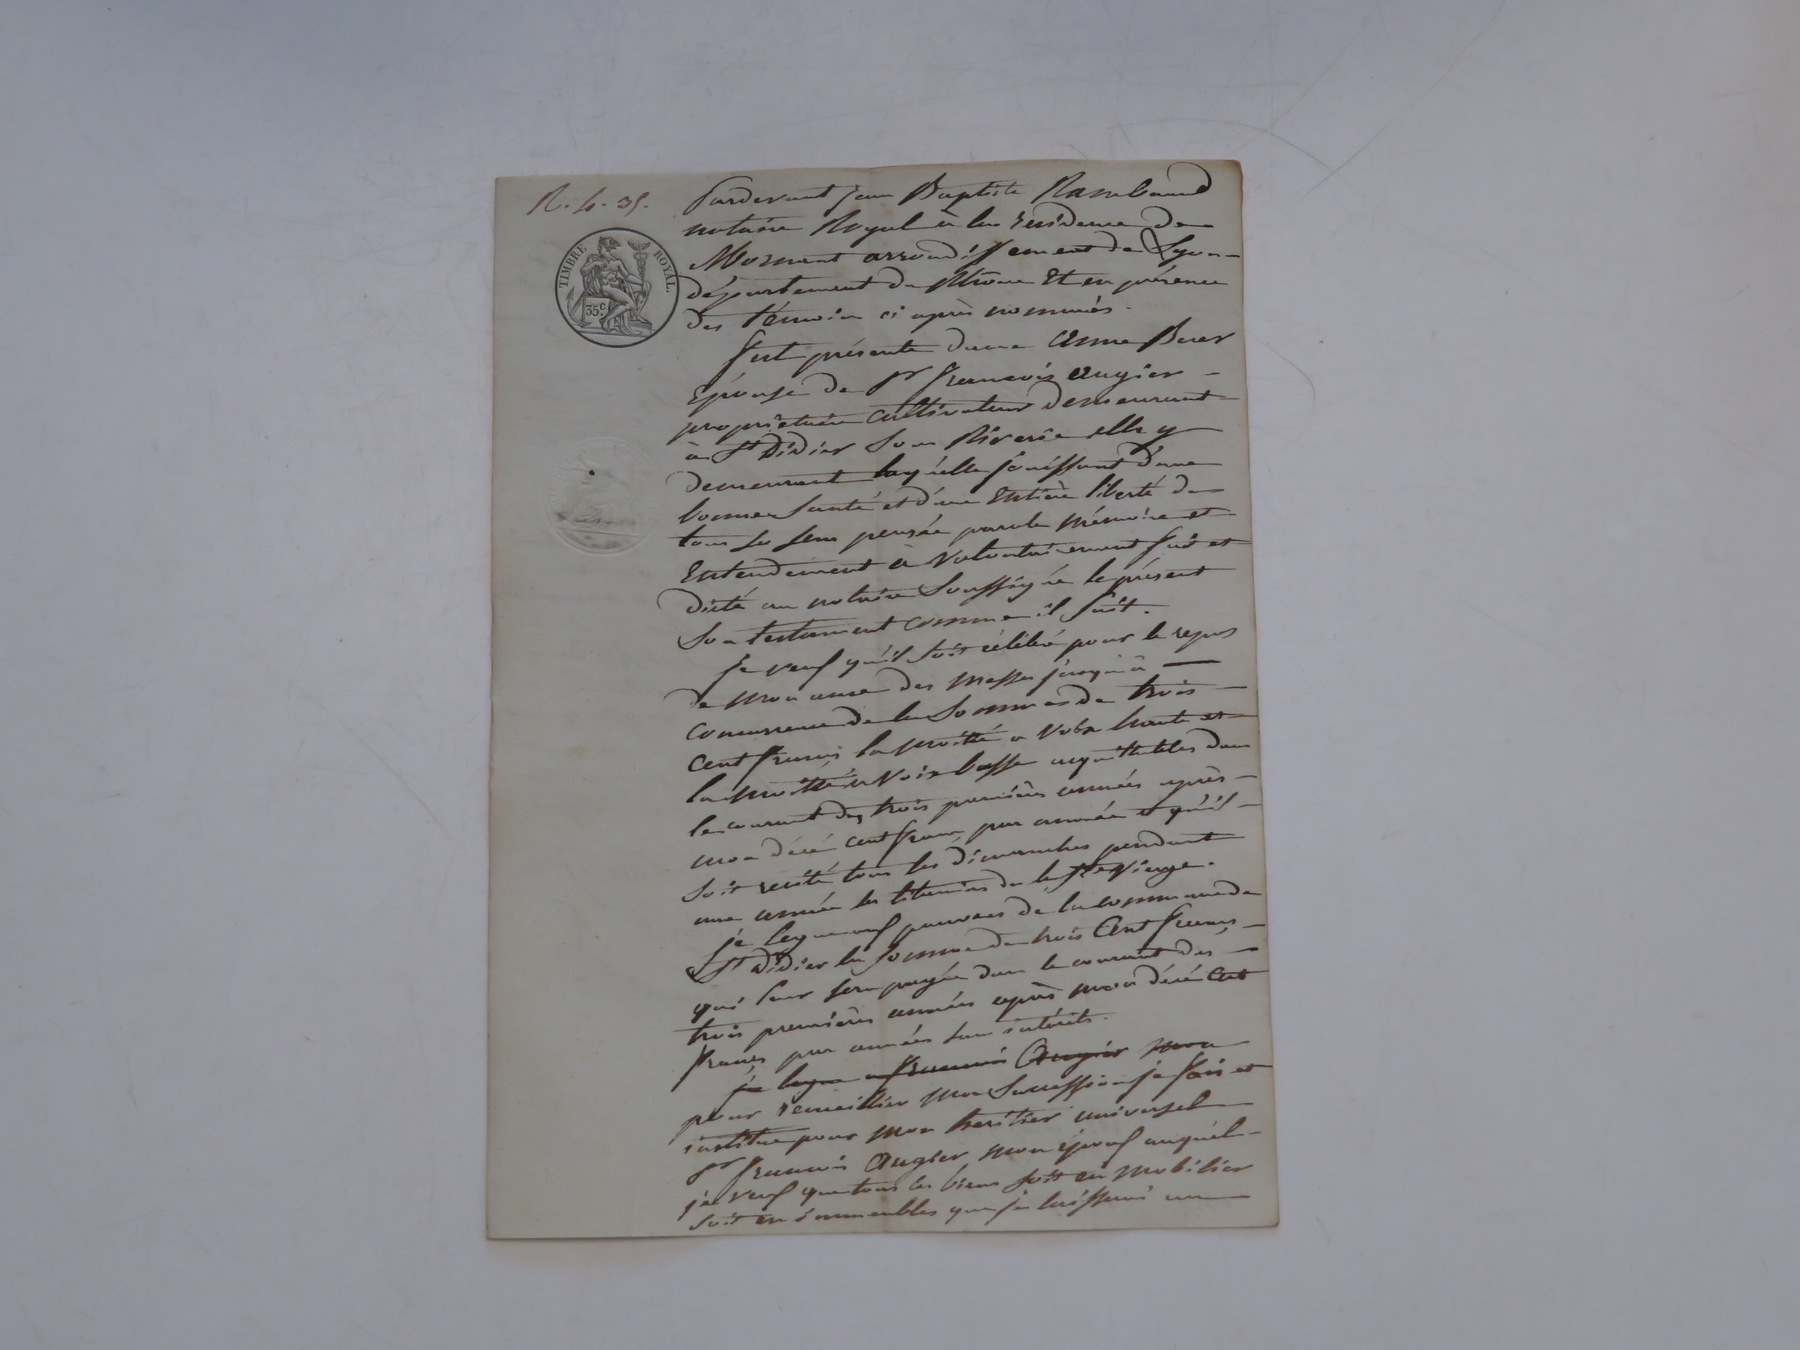 R. 4. 35.
TIMBRE ROYAL.
35c
Pardevant jean Baptiste Rambaud
notaire Royal à la residence de
Mornant arrondissement de Lyon
département du Rhône Et en présence
des témoins ci après nommés.
fut présente dame Anne
Epouse de Sr francois Augier
propriétaire cultivateur demeurant
à St Didier Sous Riverie elle y
demeurant laquelle jouissant d'une
bonne Santé et d'une Entière liberté de
tous ses sens pensée parole mémoire et
Entendement a Volontairement fait et
dicté au notaire Soussigné le présent
Son testament comme il suit.
je veux qu'il soit célébré pour le repos
de mon ame des messes jusqu'à
concurrence de la Somme de trois
cent francs la moitié a Voix haute et
la moitié a Voix basse acquittables dans
le courant des trois premières années après
mon décé cent francs par année et qu'il
soit recité tous les dimanches pendant
une année les litanies de la Ste Vierge.
je legue aux pauvres de la commune de
St Didier la somme de trois Cent francs
qui leur sera payée dans le courant des
trois premières années après mon décé cent
francs par années sans intérêts.
je legue a francois Augier mon
pour recueillir ma Succession je fais et
institue pour mon heritier universel
Sr francois Augier mon époux auquel
je veux que tous les biens soit en mobilier
soit en immeubles que je laisserai